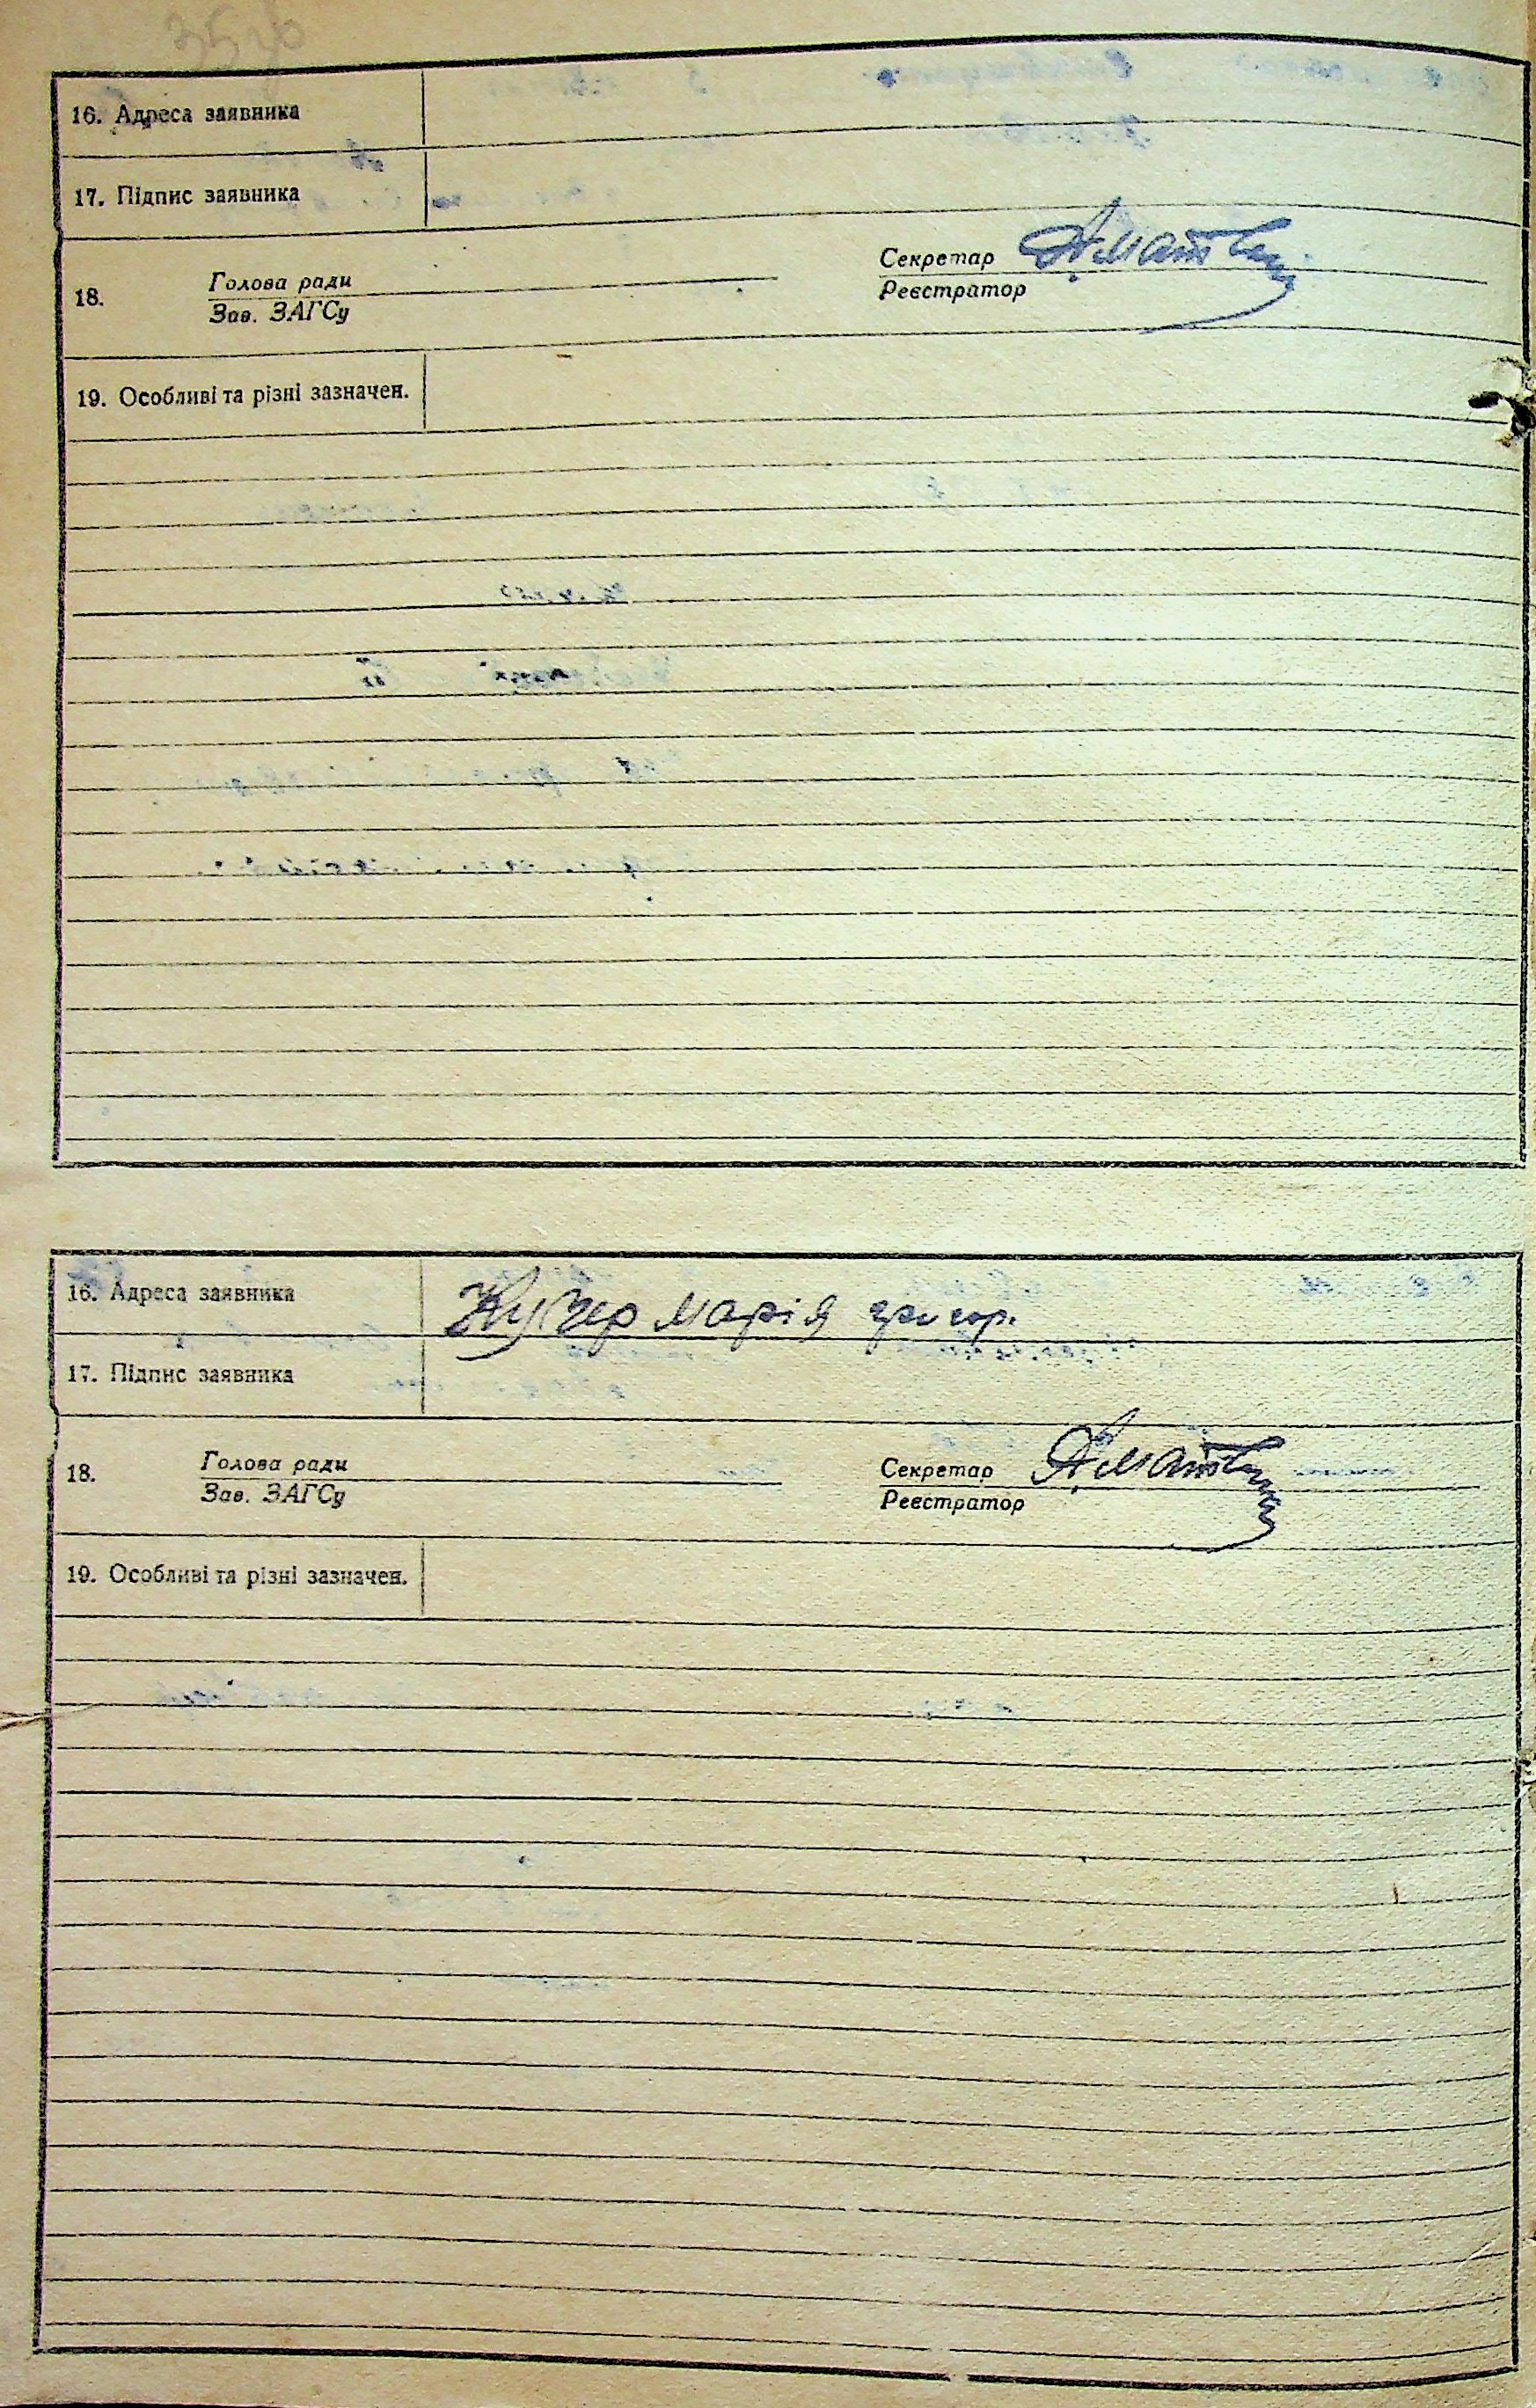 16. Адреса заявника
17. Підпис заявника
18. Голова ради
Зав. ЗАГСу
Секретар
Реєстратор
19. Особливі та різні зазначен.
16. Адреса заявника
марія григор.
17. Підпис заявника
18. Голова ради
Зав. ЗАГСу
Секретар
Реєстратор
19. Особливі та різні зазначен.